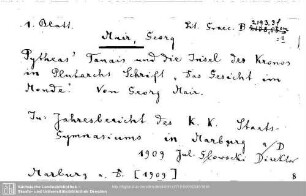 1. Blatt.
Lit. Graec. B 2193,31
Mair, Georg
Pytheas' Tanais und die Insel des Kronos
in Plutarchs Schrift „Das Gesicht im
Monde“ Von Georg Mair.
In: Jahresbericht des K. K. Staats-
Gymnasiums in Marburg a/D
1909 Jul. Glowacki Direktor
Marburg a. D. [1909] 8